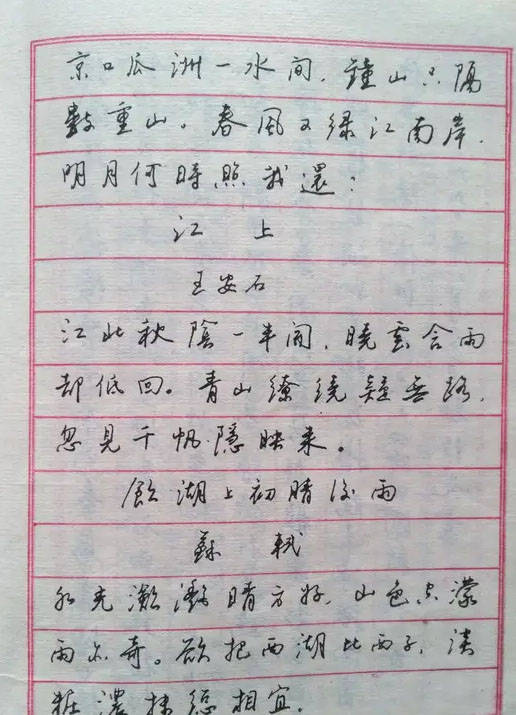 京口瓜洲一水间，鍾山只隔
數重山。春風又绿江南岸，
明月何時照我還？
江 上
王安石
江北秋陰一半開，曉雲含雨
却低回。青山繚绕疑無路，
忽見千帆隱映来。
飲湖上初晴後雨
蘇 軾
水光瀲灧晴方好，山色空濛
雨亦奇。欲把西湖比西子，淡
粧濃抹總相宜。